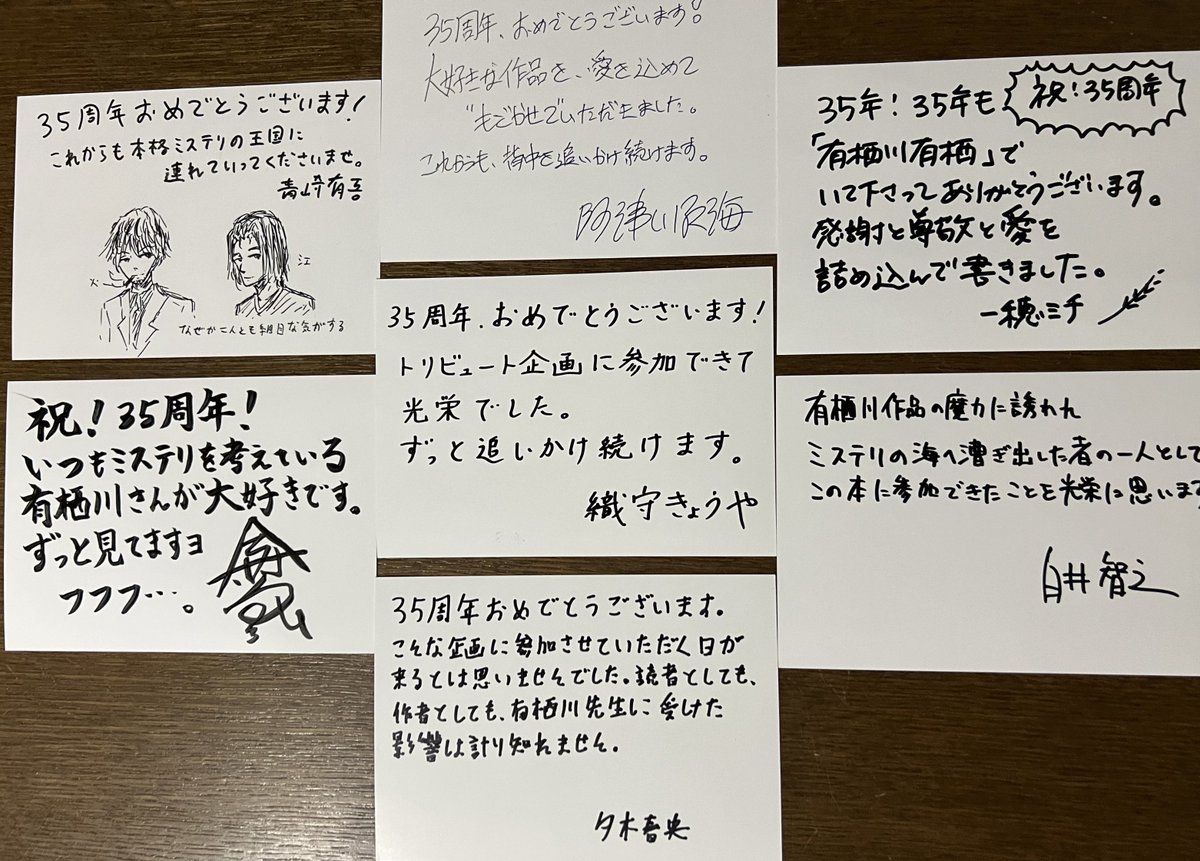 35周年おめでとうございます!
これからも本格ミステリの王国に
連れていってくださいませ。
青崎有吾
火
江
なぜか二人とも細目な気がする
35周年、おめでとうございます!
大好きな作品を、愛を込めて
いただきました。
これからも、背中を追いかけ続けます。
阿津川辰海
祝!35周年
35年!35年も
「有栖川有栖」で
いて下さってありがとうございます。
感謝と尊敬と愛を
詰め込んで書きました。
一穂ミチ
祝!35周年!
いつもミステリを考えている
有栖川さんが大好きです。
ずっと見てますヨ
フフフ…。
35周年、おめでとうございます!
トリビュート企画に参加できて
光栄でした。
ずっと追いかけ続けます。
織守きょうや
有栖川作品の魔力に誘われ
ミステリの海へ漕ぎ出した者の一人として
この本に参加できたことを光栄に思います
白井智之
35周年おめでとうございます。
こんな企画に参加させていただく日が
来るとは思いませんでした。読者としても、
作者としても、有栖川先生に受けた
影響は計り知れません。
夕木春央